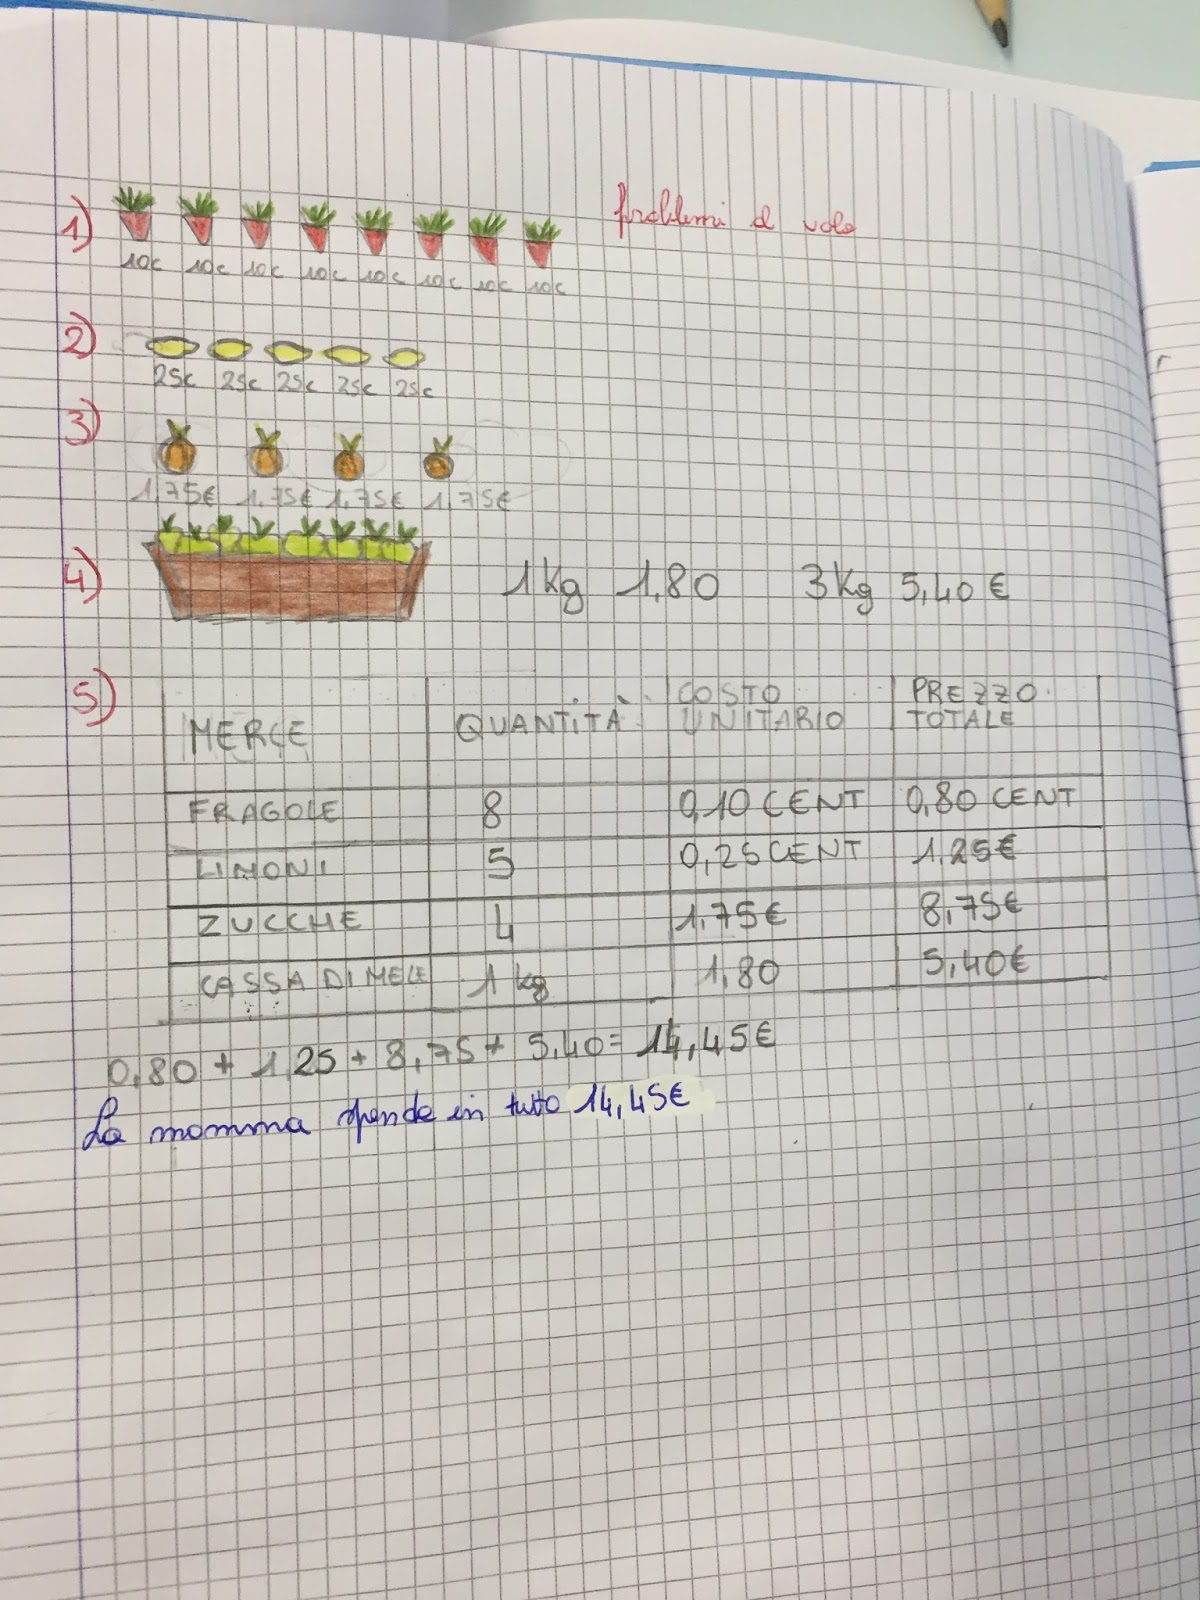 Problemi al volo
1)
10c 10c 10c 10c 10c 10c 10c 10c
2)
25c 25c 25c 25c 25c
3)
1,75€ 1,75€ 1,75€ 1,75€
4) 1 Kg 1,80 3 Kg 5,40 €
5)
MERCE QUANTITÀ COSTO UNITARIO PREZZO TOTALE
FRAGOLE 8 0,10 CENT 0,80 CENT
LIMONI 5 0,25 CENT 1,25€
ZUCCHE 4 1,75€ 8,75€
CASSA DI MELE 1 kg 1,80 5,40€
0,80 + 1,25 + 8,75 + 5,40 = 14,45€
La mamma spende in tutto 14,45€